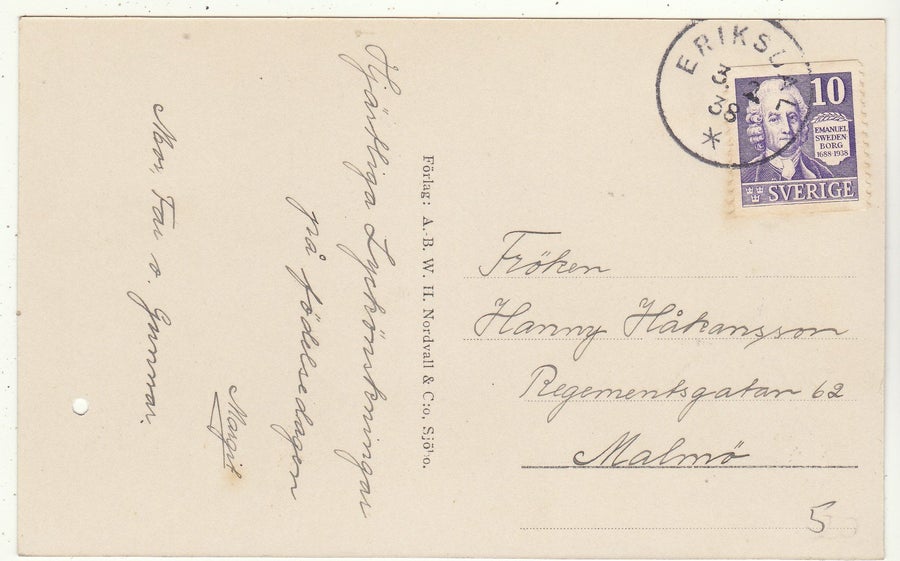 Hjärtliga Lyckönskningar
på födelsedagen
Margit
Mor, Far o. Gunnar.
Förlag: A.-B. W. H. Nordvall & C:o, Sjöbo.
ERIKSDAL
3. 2
38
*
10
EMANUEL
SWEDEN
BORG
1688-1938
SVERIGE
Fröken
Hanny Håkansson
Regementsgatan 62
Malmö
5